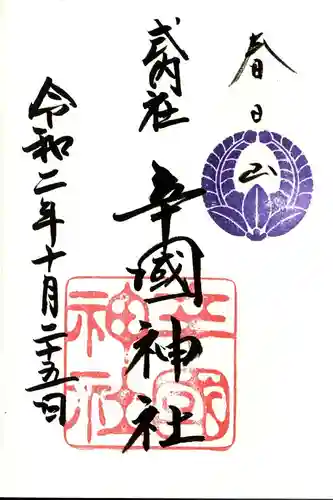 春日山
式内社
辛國神社
令和二年十月二十五日
辛國神社